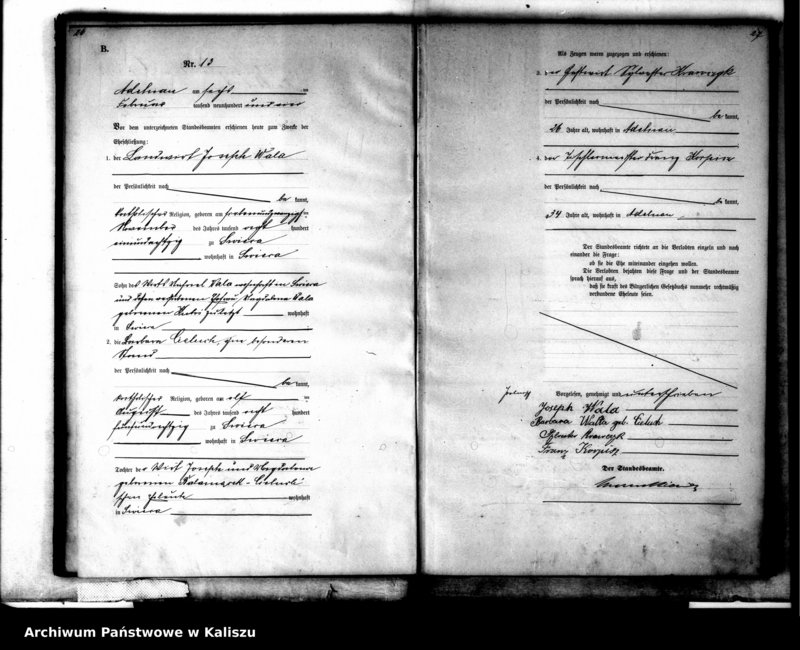 26
B.
Nr. 13
Adelnau am sechs
Februar tausend neunhundert und
Vor dem unterzeichneten Standesbeamten erschienen heute zum Zwecke der
Eheschließung:
1. der Landwirt Joseph Wala
der Persönlichkeit nach
be kannt,
katholischer Religion, geboren am
November des Jahres tausend acht hundert
einundachtzig zu
wohnhaft in
Sohn des Wirts Wala wohnhaft in
und dessen Ehefrau Magdalena Wala
geborenen wohnhaft
in
2. die Barbara Cieluch, ohne besonderen
Stand
der Persönlichkeit nach
be kannt,
katholischer Religion, geboren am elf
August des Jahres tausend acht hundert
fünfundachtzig zu
wohnhaft in
Tochter der Wirt Joseph und Magdalena
geborenen Cieluch
schen Eheleute wohnhaft
in
27
Als Zeugen waren zugezogen und erschienen:
3. der Gastwirt Sylvester Krawczyk
der Persönlichkeit nach
be kannt,
26 Jahre alt, wohnhaft in Adelnau
4. der Tischlermeister Franz Korpisz
der Persönlichkeit nach
be kannt,
34 Jahre alt, wohnhaft in Adelnau
Der Standesbeamte richtete an die Verlobten einzeln und nach
einander die Frage:
ob sie die Ehe miteinander eingehen wollen.
Die Verlobten bejahten diese Frage und der Standesbeamte
sprach hierauf aus,
daß sie kraft des Bürgerlichen Gesetzbuchs nunmehr rechtmäßig
verbundene Eheleute seien.
Vorgelesen, genehmigt und unterschrieben
Joseph Wala
Barbara Walla geb. Cieluch
Sylvester Krawczyk
Franz Korpisz
Der Standesbeamte.
Archiwum Państwowe w Kaliszu